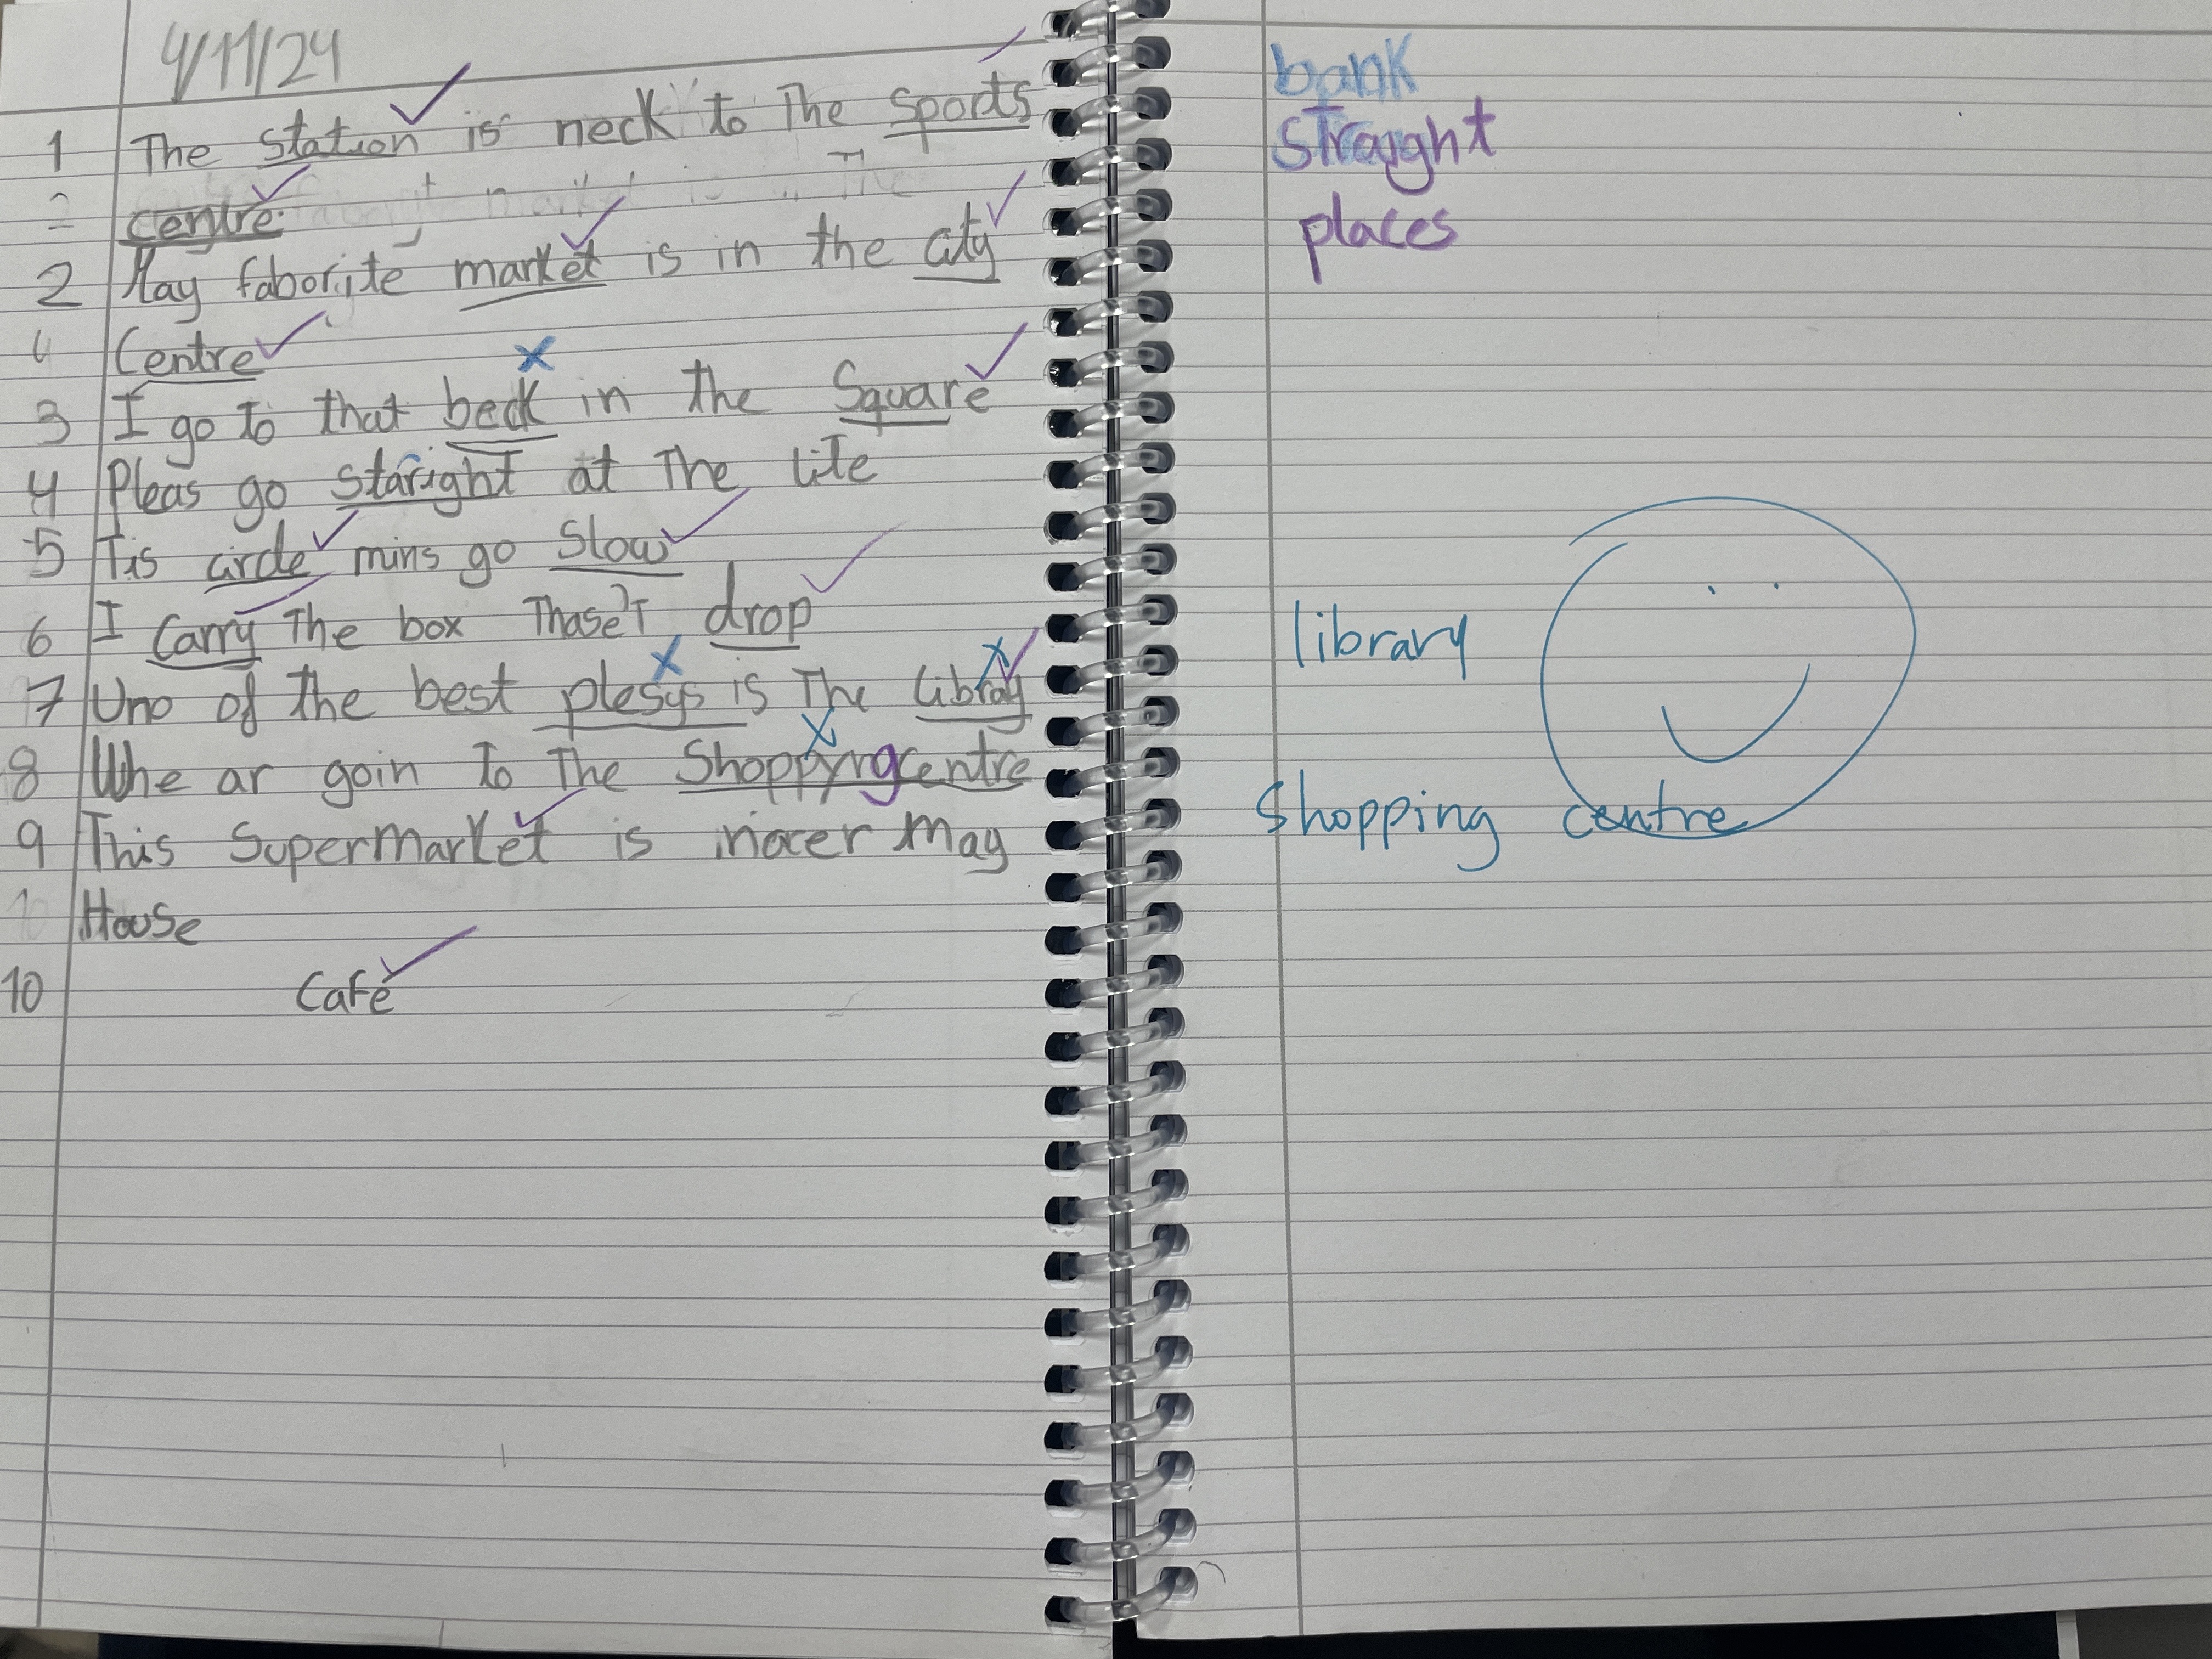 4/11/24
1 The station is neck to The sports
2 centre.
2 May faborite market is in the city
4 Centre
3 I go to that beck in the Square
4 Pleas go staright at The lite
5 Tis circle mins go slow
6 I carry The box Thase't drop
7 Uno of the best plesys is The libray
8 Whe ar goin to The Shoppyngcentre
9 This Supermarket is nacer May
10 House
10 Café
bank
straight
places
library
Shopping centre